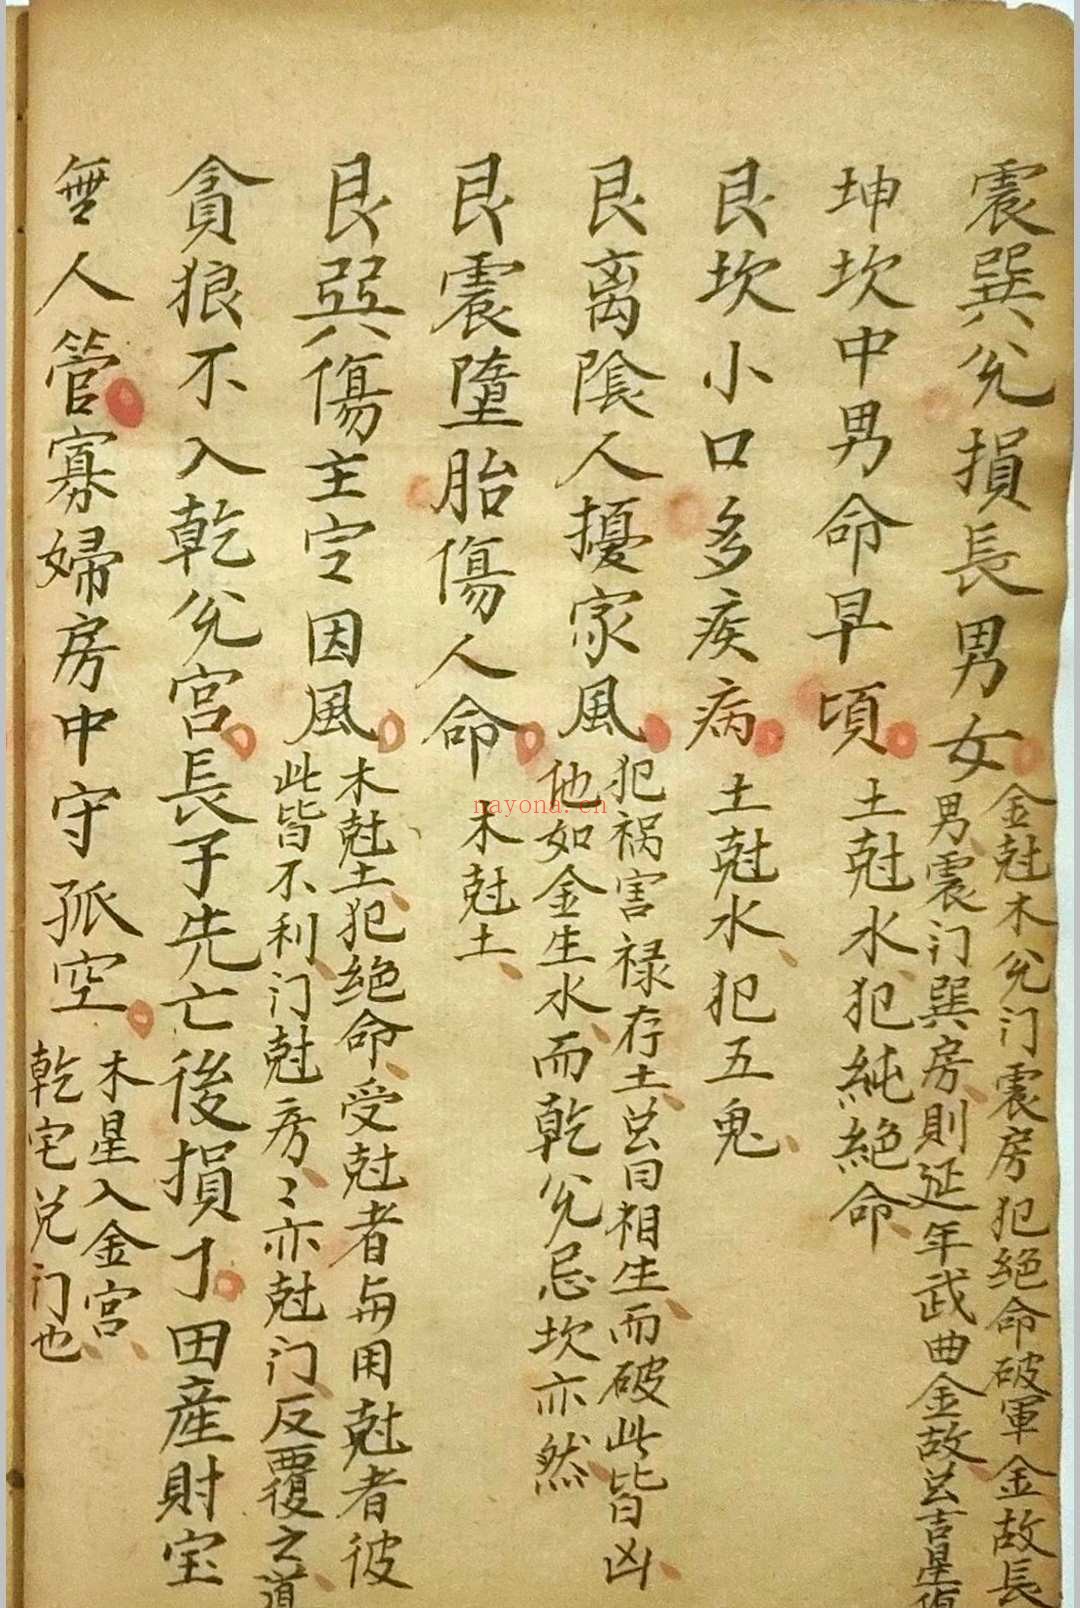 震巽兊損長男女
金尅木兊门震房犯絕命破軍金故長
男震门巽房則延年武曲金故
吉星
坤坎中男命早頃
土尅水犯純絕命
艮坎小口多疾病
土尅水犯五鬼
艮离陰人擾家風
犯祸害禄存土
相生而破此皆凶
他如金生水而乾兊忌坎亦然
艮震墮胎傷人命
木尅土
艮巽傷主定因風
木尅土犯絕命受尅者與用尅者彼
此皆不利门尅房々亦尅门反覆之道
貪狼不入乾兊宮長子先亡後損丁田産財宝
無人管寡婦房中守孤空
木星入金宮
乾宅兑门也
nayona.cn